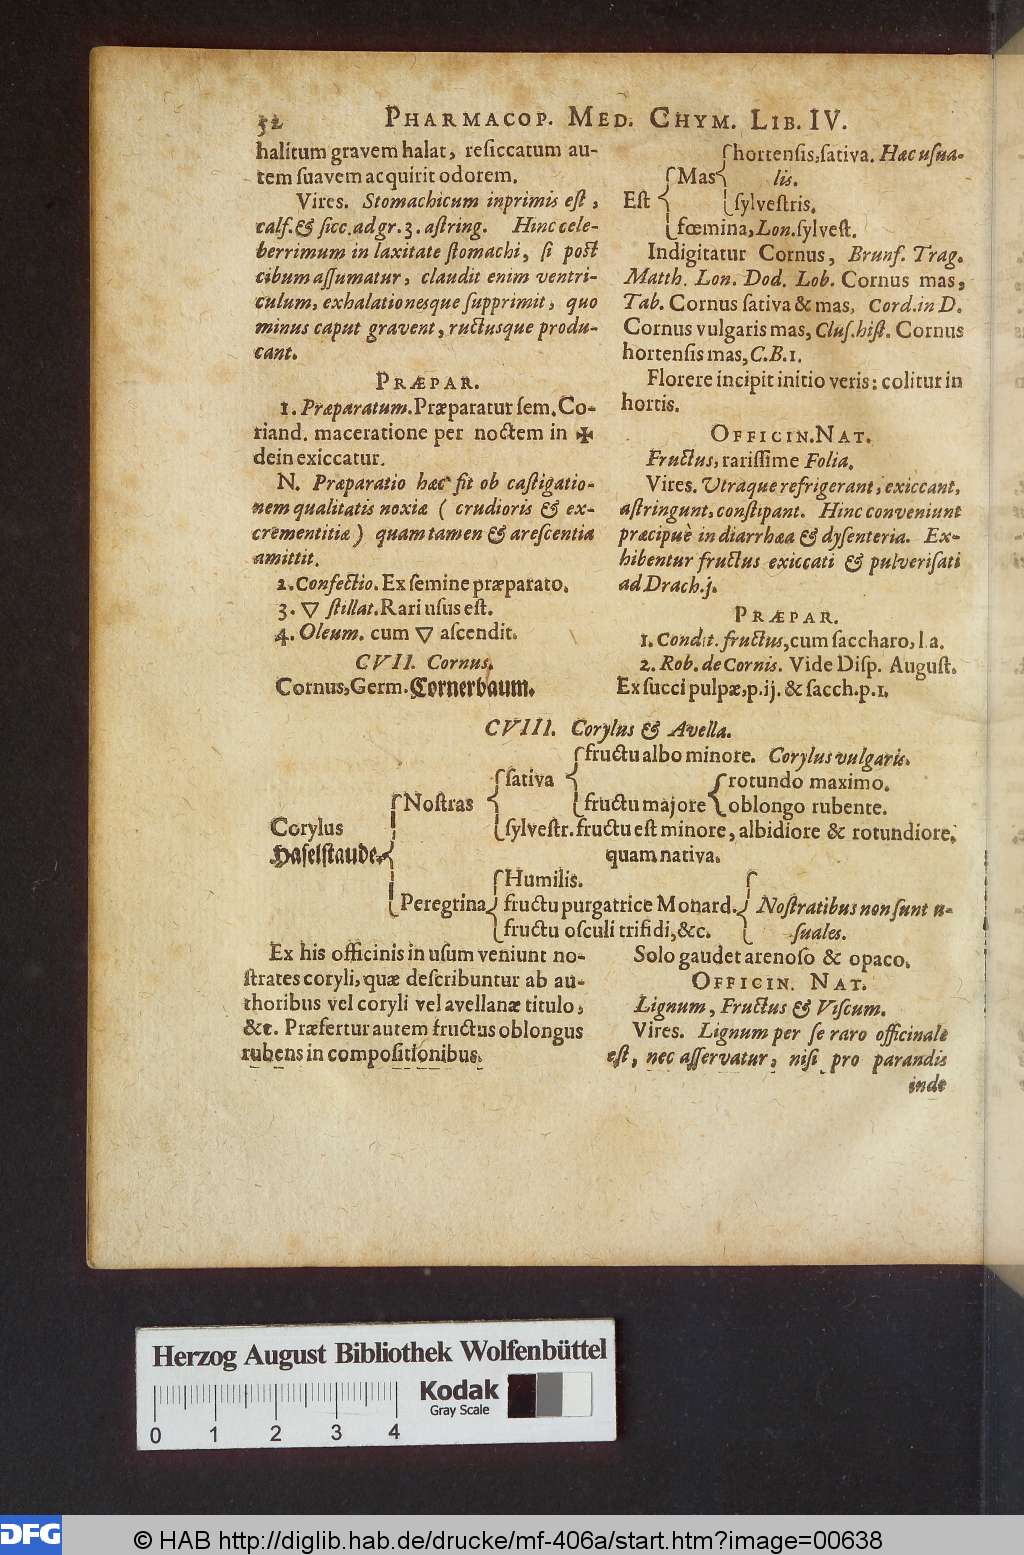 52 PHARMACOP. MED. CHYM. LIB. IV.
halitum gravem halat, resiccatum au-
tem suavem acquirit odorem.
Vires. Stomachicum inprimis est,
calf. & sicc. ad gr. 3. astring. Hinc cele-
berrimum in laxitate stomachi, si post
cibum assumatur, claudit enim ventri-
culum, exhalationesque supprimit, quo
minus caput gravent, ructusque produ-
cant.
PRÆPAR.
1. Præparatum. Præparatur sem. Co-
riand. maceratione per noctem in ✠
dein exiccatur.
N. Præparatio hæc fit ob castigatio-
nem qualitatis noxiæ ( crudioris & ex-
crementitiæ ) quam tamen & arescentia
amittit.
2. Confectio. Ex semine præparato.
3. ▽ stillat. Rari usus est.
4. Oleum. cum ▽ ascendit.
CVII. Cornus.
Cornus, Germ. Cornerbaum.
hortensis, sativa. Hac usua-
Mas lis.
Est sylvestris.
fœmina, Lon. sylvest.
Indigitatur Cornus, Brunf. Trag.
Matth. Lon. Dod. Lob. Cornus mas,
Tab. Cornus sativa & mas, Cord. in D.
Cornus vulgaris mas, Clus. hist. Cornus
hortensis mas, C.B. 1.
Florere incipit initio veris: colitur in
hortis.
OFFICIN. NAT.
Fructus, rarissime Folia.
Vires. Utraque refrigerant, exiccant,
astringunt, constipant. Hinc conveniunt
præcipuè in diarrhœa & dysenteria. Ex-
hibentur fructus exiccati & pulverisati
ad Drach. j.
PRÆPAR.
1. Condit. fructus, cum saccharo, l.a.
2. Rob. de Cornis. Vide Disp. August.
Ex succi pulpæ, p. ij. & sacch. p. 1.
CVIII. Corylus & Avella.
fructu albo minore. Corylus vulgaris.
sativa rotundo maximo.
Nostras fructu majore oblongo rubente.
Corylus sylvestr. fructu est minore, albidiore & rotundiore,
Haselstaude. quam nativa.
Humilis.
Peregrina fructu purgatrice Monard. Nostratibus non sunt u-
fructu osculi trifidi, &c. suales.
Ex his officinis in usum veniunt no-
strates coryli, quæ describuntur ab au-
thoribus vel coryli vel avellanæ titulo,
&c. Præfertur autem fructus oblongus
rubens in compositionibus.
Solo gaudet arenoso & opaco.
OFFICIN. NAT.
Lignum, Fructus & Viscum.
Vires. Lignum per se raro officinale
est, nec asservatur, nisi pro parandis
inde
Herzog August Bibliothek Wolfenbüttel
Kodak
Gray Scale
0 1 2 3 4
DFG
© HAB http://diglib.hab.de/drucke/mf-406a/start.htm?image=00638